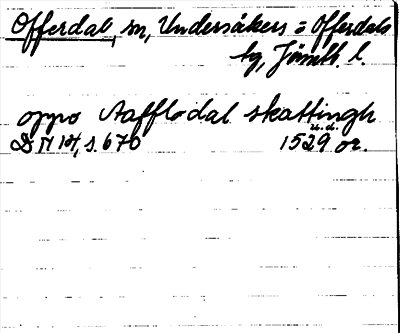 Offerdal, sn, Undersåkers o Offerdals
tg, Jämtl. l.
oppo Aafflodal skattingh
u.d.
DN 14, s. 670 1529 or.